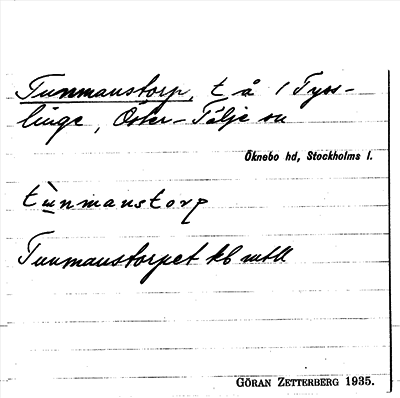 Tunmanstorp, t å i Tyss-
linge, Öster-Tälje sn
Öknebo hd, Stockholms l.
tùnmanstorp
Tunmanstorpet kb mtll
GÖRAN ZETTERBERG 1935.